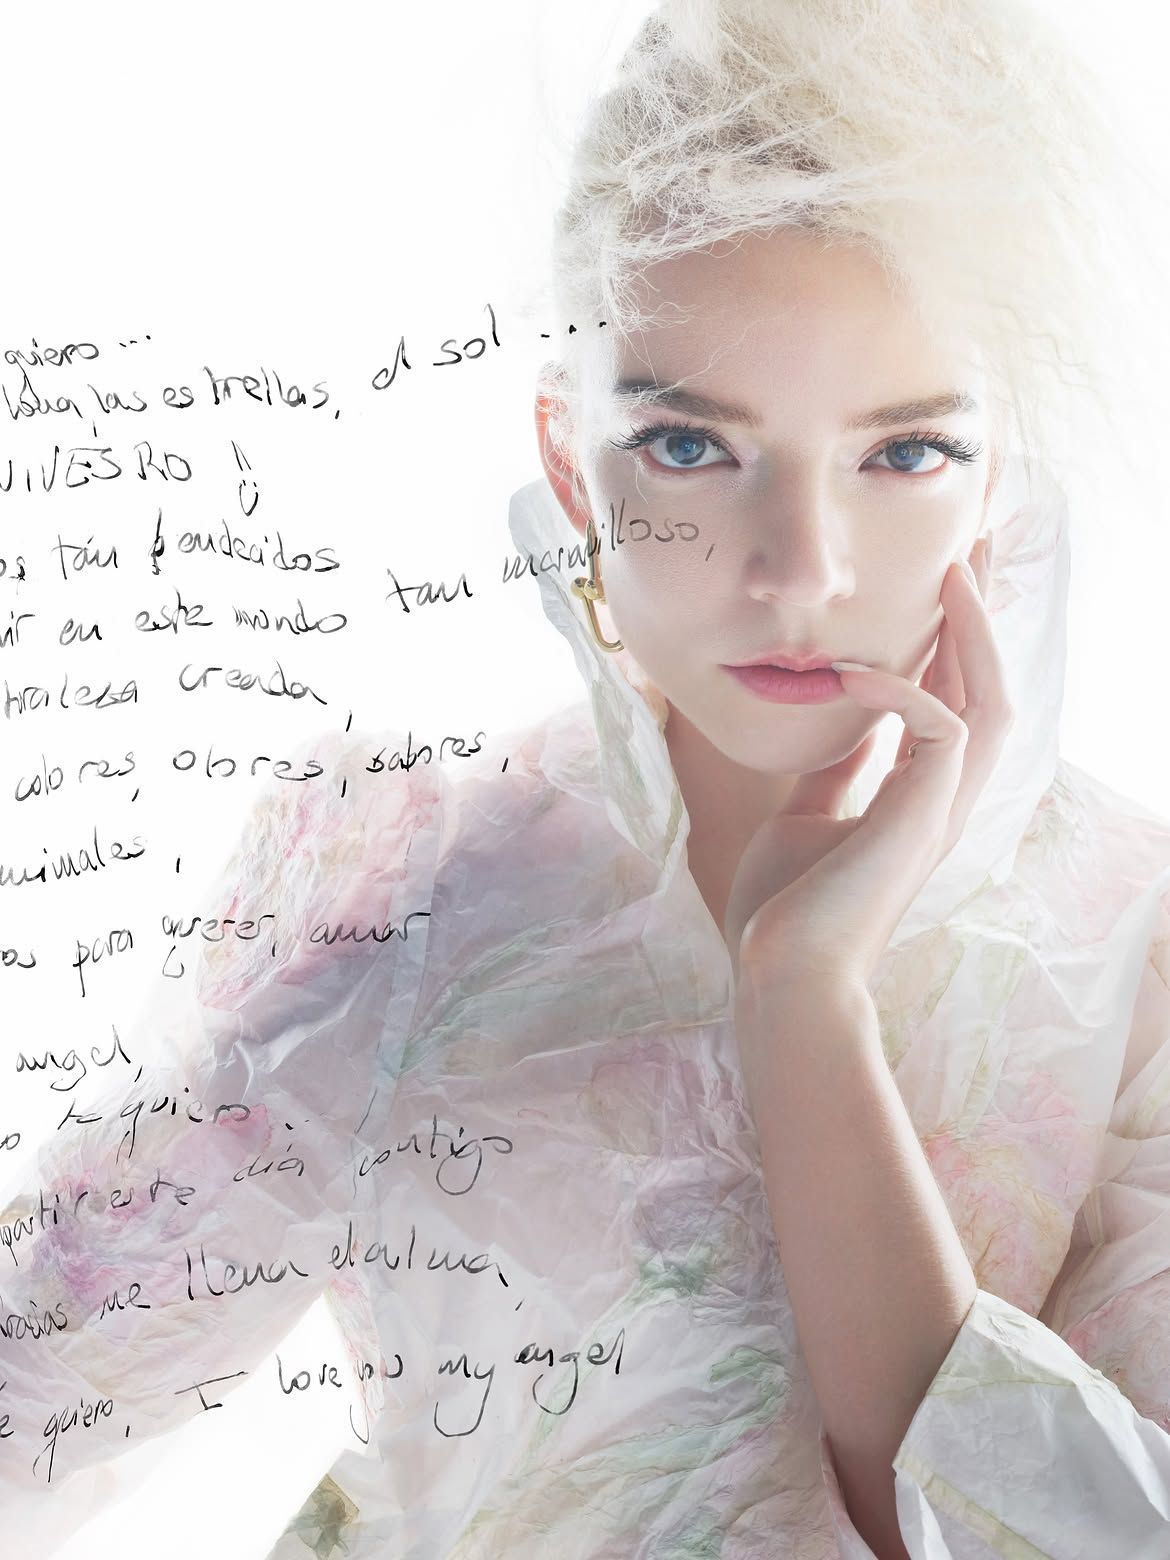 quiero ...
luna, las estrellas, el sol ....
tan bendecidos
en este mundo tan maravilloso,
creada,
colores, olores, sabores,
animales,
para querer, amar
angel,
te quiero ...
este día contigo
me llena el alma,
quiero, I love you my angel